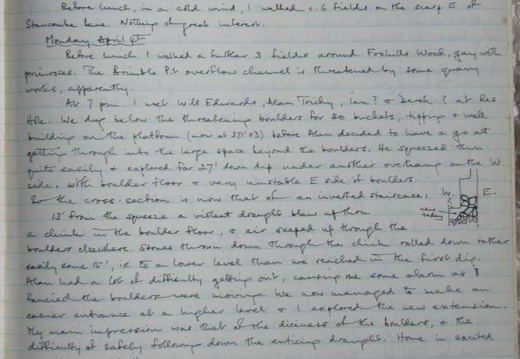 Before lunch, in a cold wind, I walked c. 6 fields on the scarp E of
Stancombe Lane. Nothing of great interest.
Monday April
Before lunch I walked a further 3 fields around Foxhills Wood, gay with
primroses. The Brimble Pit overflow channel is threatened by some quarry
works, apparently.
At 7 pm I met Will Edwards, Alan, Ian? & Derek? at
Hole. We dug below the threatening boulders for 80 buckets, tipping & wall
building on the platform (now at 37'03) before Alan decided to have a go at
getting through into the large space beyond the boulders. He squeezed thru
quite easily & explored for 27' down dip under another overhang on the W
side, with boulder floor & very unstable E side of boulders.
So the cross-section is now that of an inverted staircase:
W. E.
13' from the squeeze a violent draught blew up from
a chink in the boulder floor, & air seeped up through the
boulders elsewhere. Stones thrown down through the chink rolled down rather
easily some 15', i.e. to a lower level than we reached in the first dig.
Alan had a lot of difficulty getting out, causing me some alarm as I
fancied the boulders were moving. We now managed to make an
easier entrance at a higher level & I explored the new extension.
My main impression was that of the diciness of the boulders, & the
difficulty of safely following down the enticing draught. Home in excited